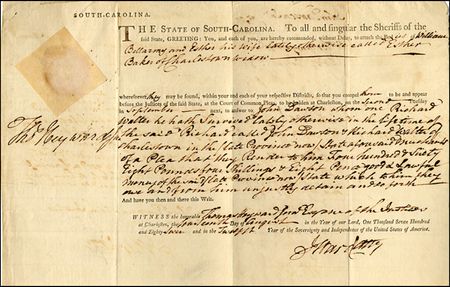 SOUTH-CAROLINA.
THE STATE OF SOUTH-CAROLINA. To all and singular the Sheriffs of the
said State, GREETING: You, and each of you, are hereby commanded, without Delay, to attach the William
Bellamy and Esther his wife lately otherwise called Esther
Baker of Charlestown widow
wheresoever they may be found, within your and each of your respective Districts, so that you compel to be and appear
before the Justices of the said State, at the Court of Common Pleas, to be holden at Charleston, on the second Tuesday in
September next, to answer to John Dawson whom one Richard
Walter he hath survived lately otherwise in the lifetime of
the said Richard called John Dawson & Richard Walter of
Charlestown in the late Province now State aforesaid merchants
of a Plea that they Render to him Four hundred & Sixty
Eight Pounds four Shillings & Eight Pence good & Lawful
Money of the said late Province now State which to him they
owe and from him unjustly detain and so forth
And have you then and there this Writ.
Thos Heyward jr
WITNESS the honorable Thomas Heyward junr Esquire of the Justices
at Charleston, the Day of August in the Year of our Lord, One Thousand Seven Hundred
and Eighty and in the Year of the Sovereignty and Independence of the United States of America.